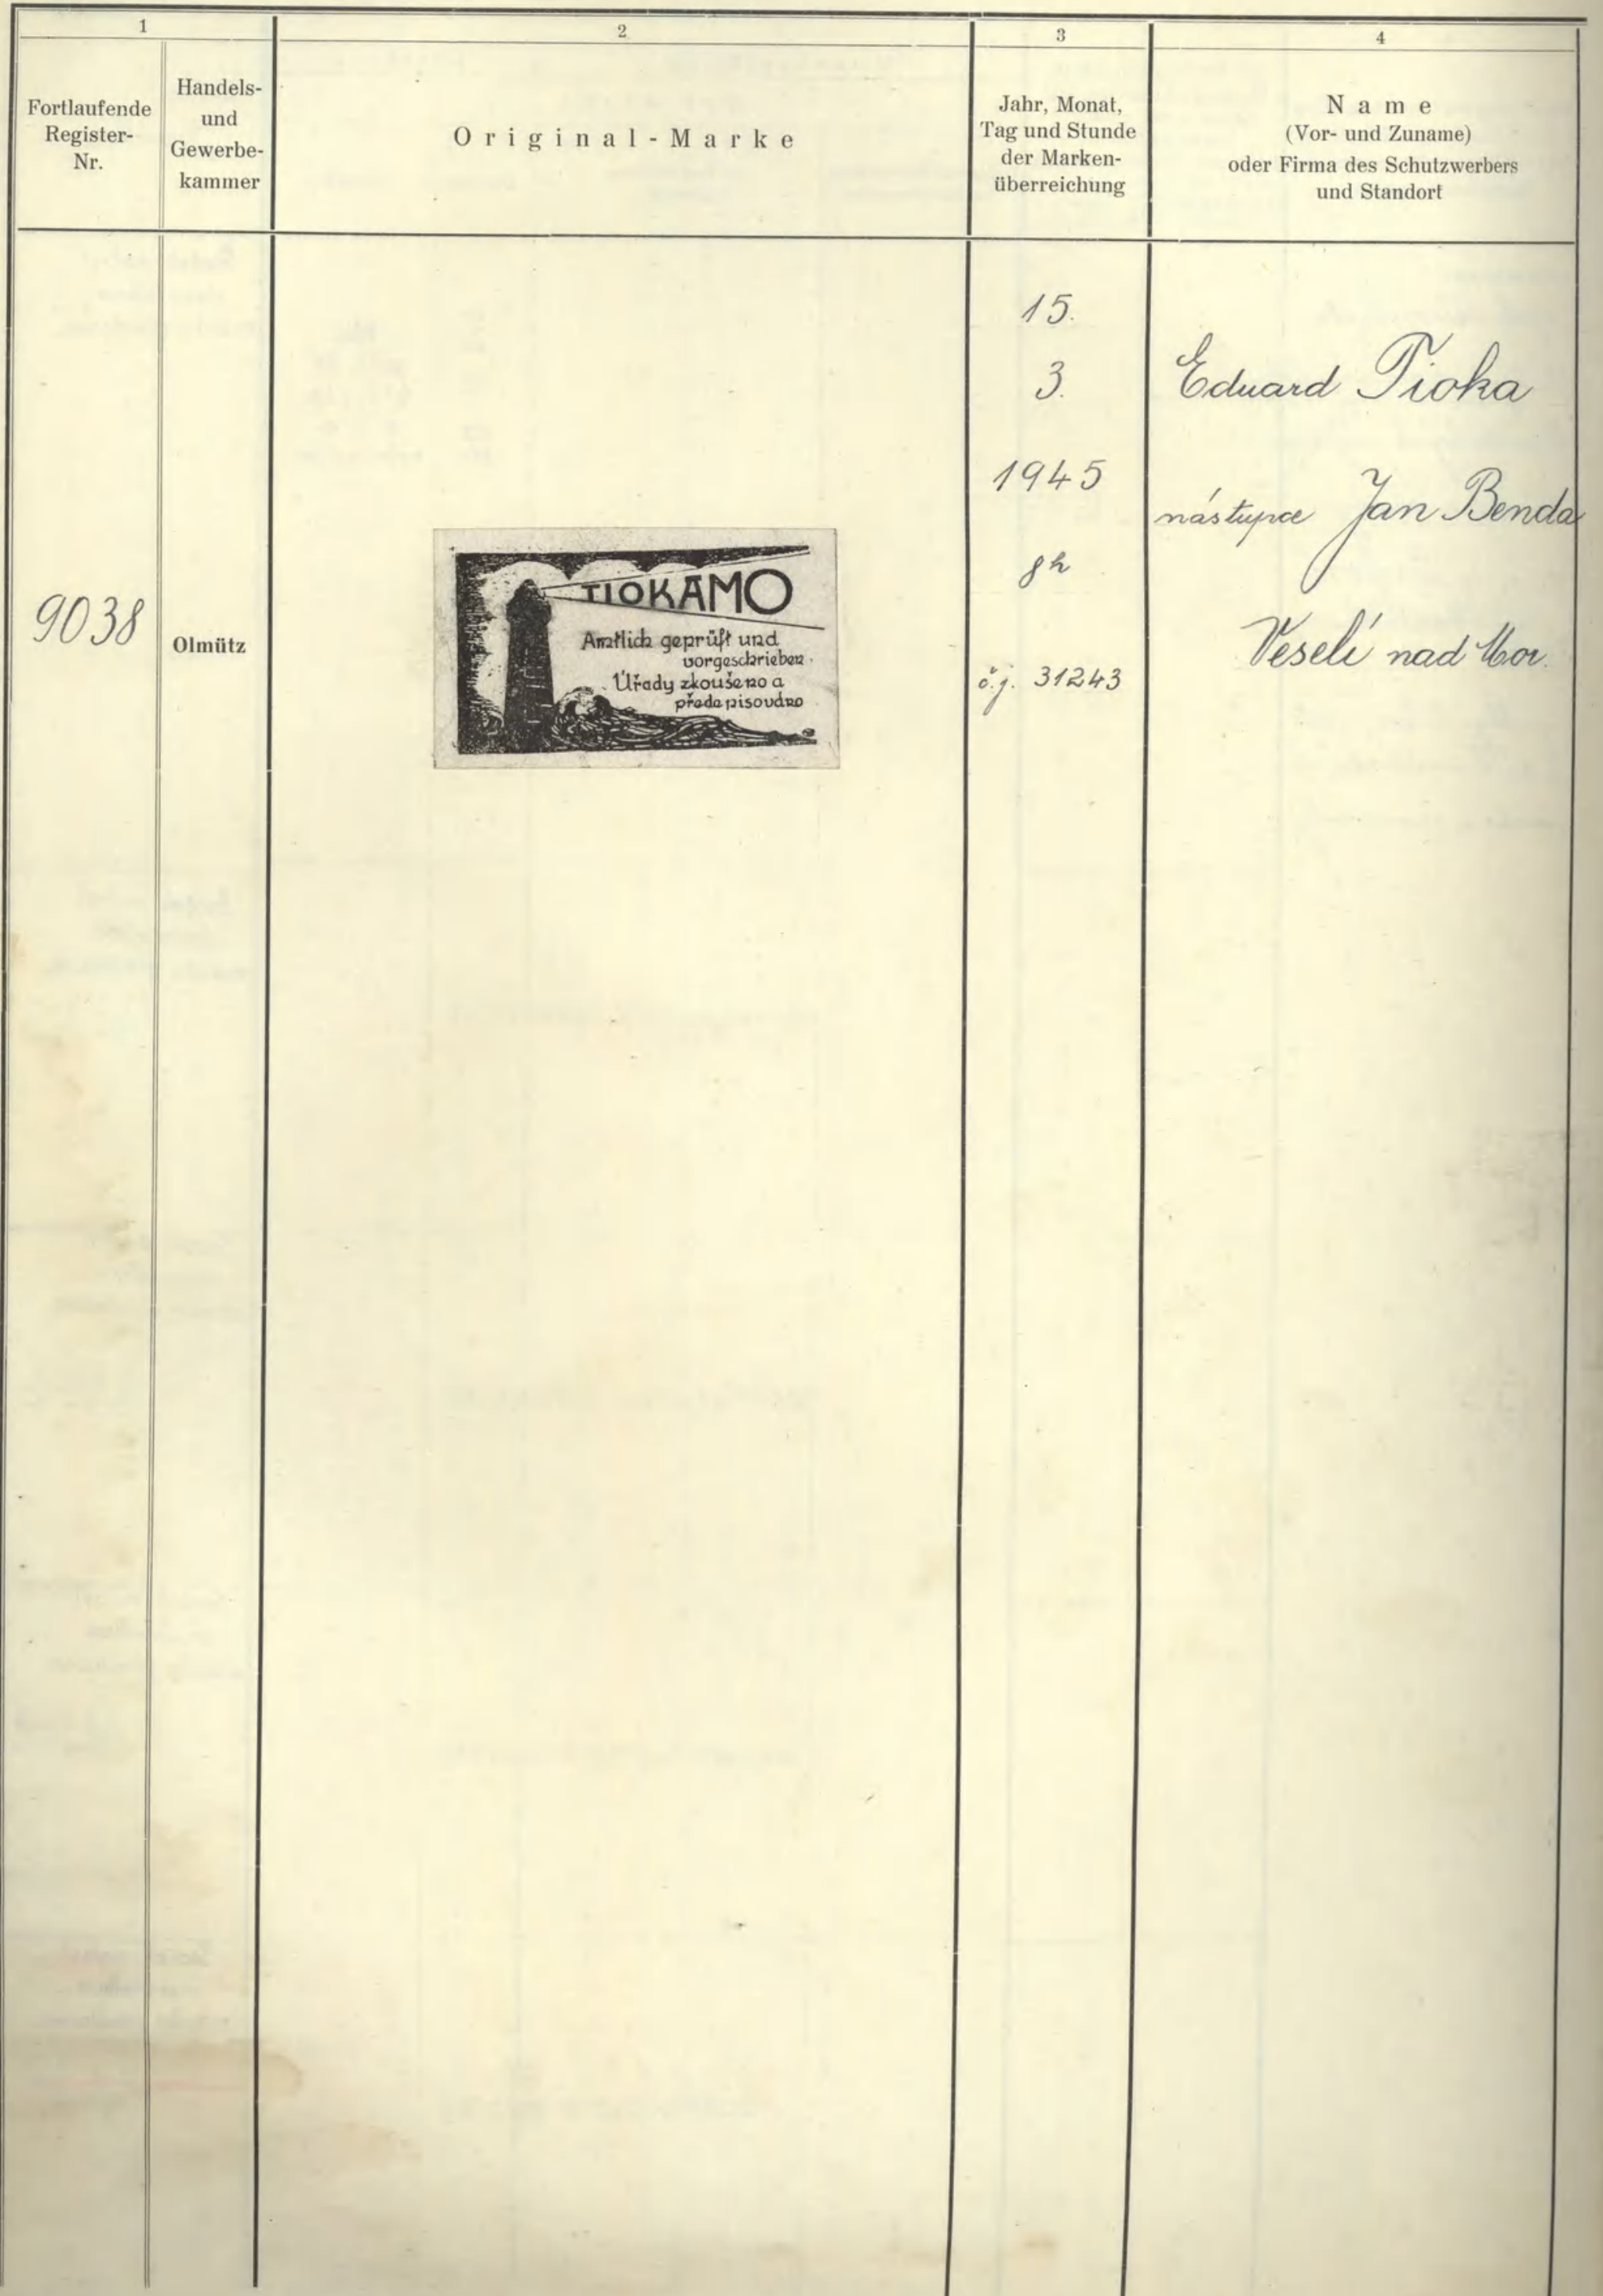 1
2
3
4
Fortlaufende
Register-
Nr.
Handels-
und
Gewerbe-
kammer
Original-Marke
Jahr, Monat,
Tag und Stunde
der Marken-
überreichung
Name
(Vor- und Zuname)
oder Firma des Schutzwerbers
und Standort
9038
Olmütz
TIOKAMO
Amtlich geprüft und
vorgeschrieben.
Úřady zkoušeno a
předepisováno
15.
3.
1945
8h
č.j. 31243
Eduard Tioka
nástupce Jan Benda
Veselí nad Mor.